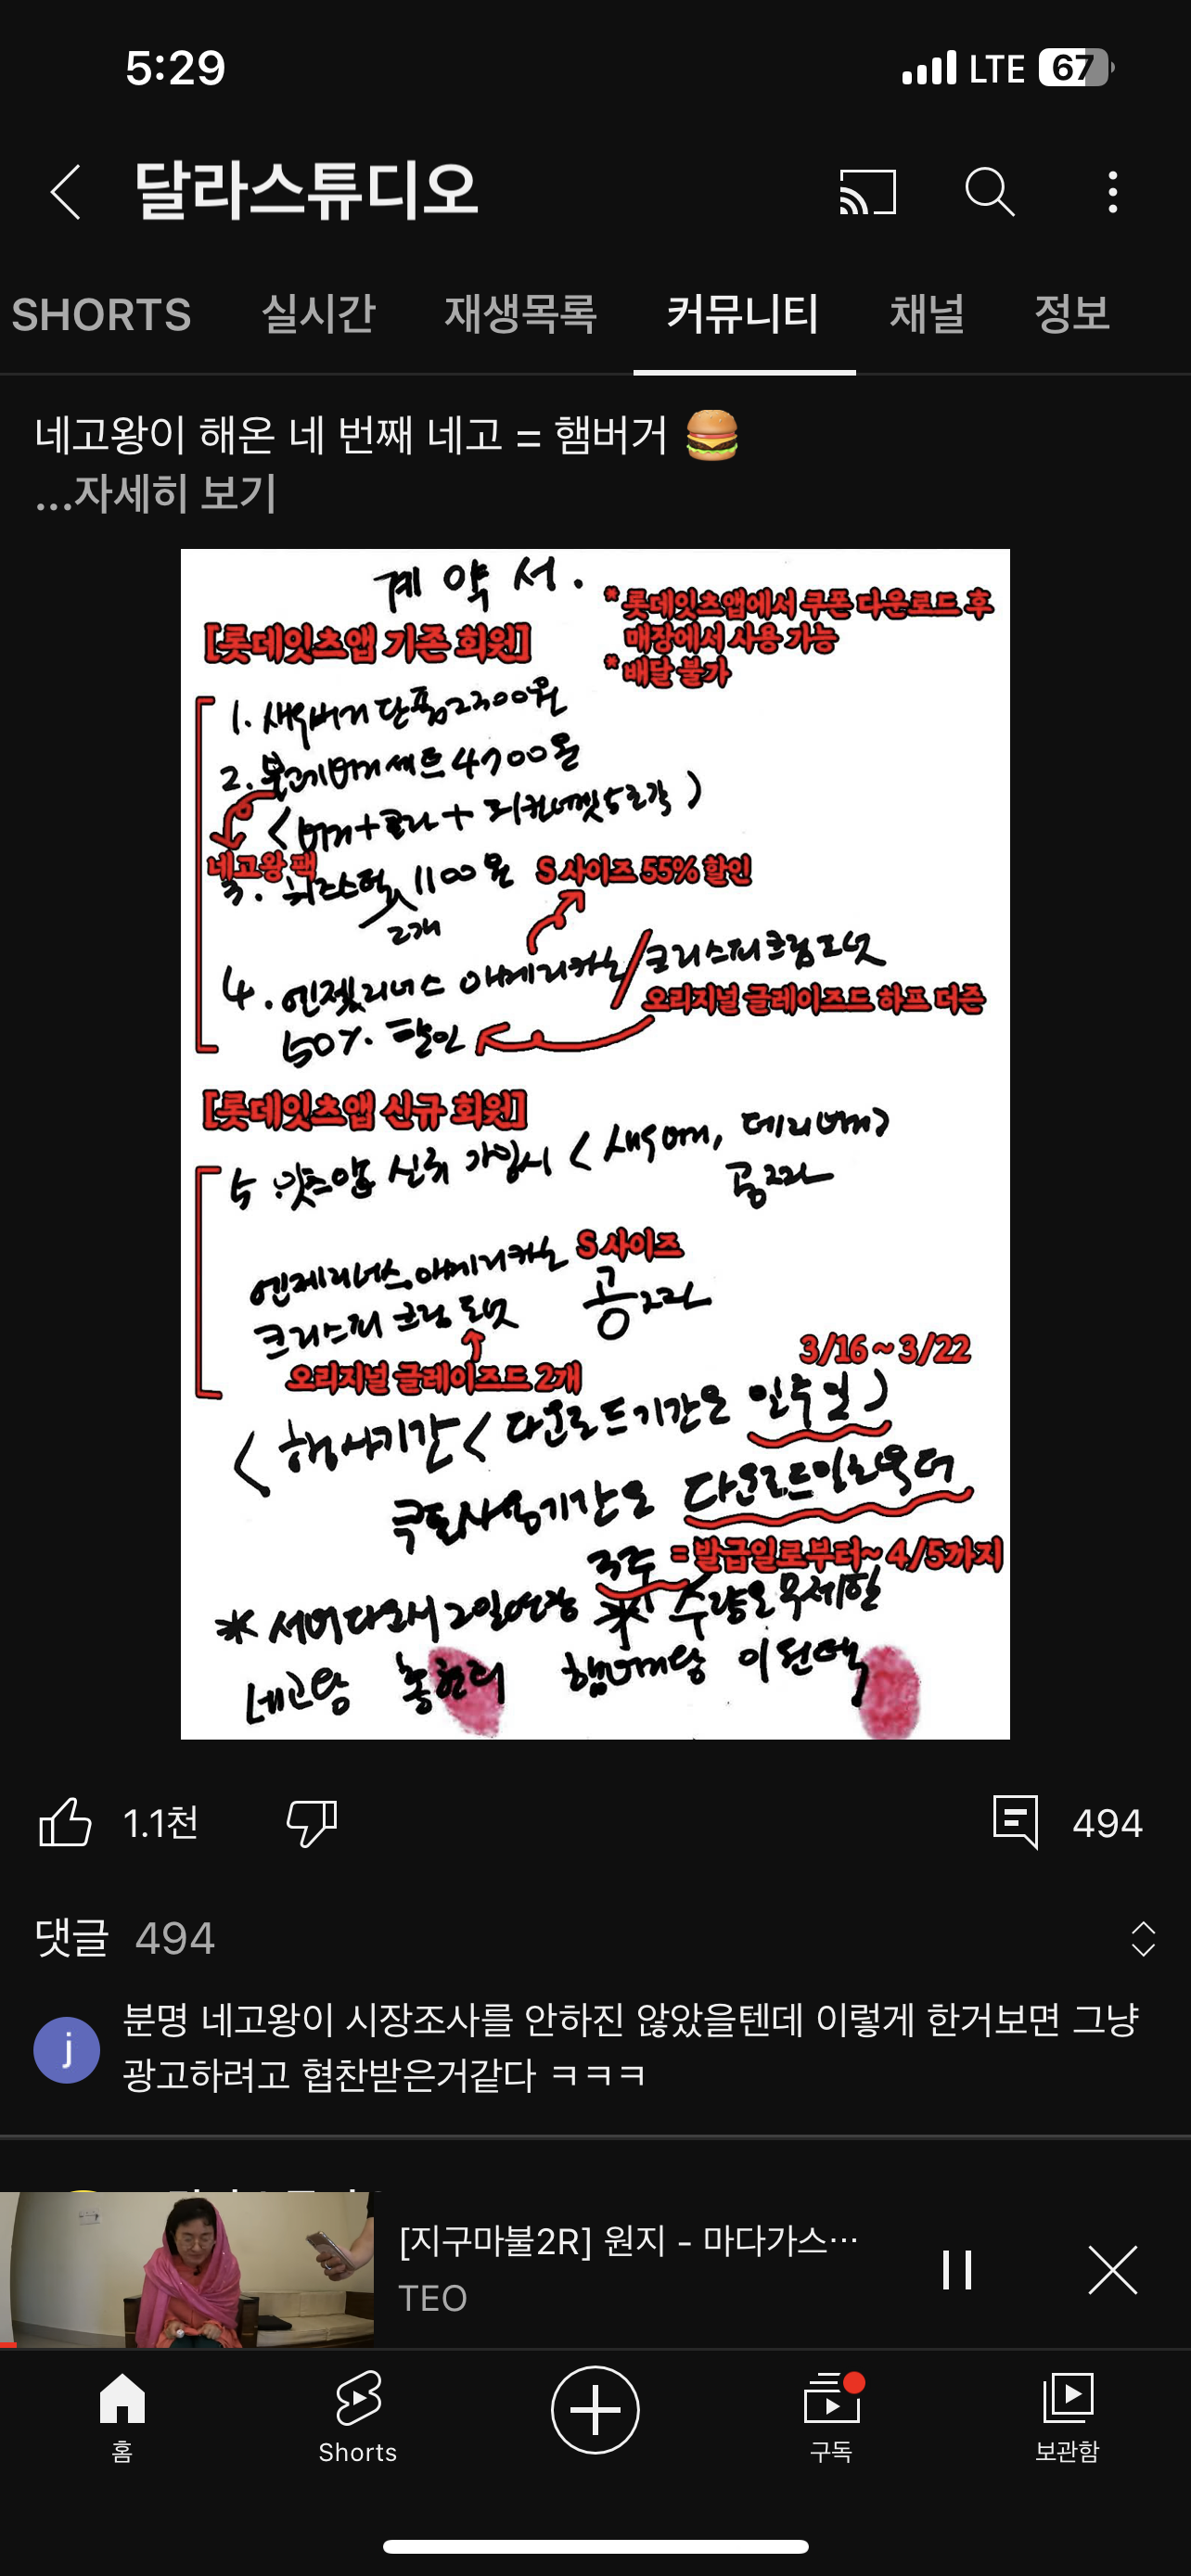 5:29 LTE 67
달라스튜디오
SHORTS 실시간 재생목록 커뮤니티 채널 정보
네고왕이 해온 네 번째 네고 = 햄버거 🍔
...자세히 보기
계약서.
* 롯데잇츠앱에서 쿠폰 다운로드 후
매장에서 사용 가능
* 배달 불가
[롯데잇츠앱 기존 회원]
1. 새우버거 단품 2300원
2. 불고기버거 세트 4700원
(버거+콜라+치킨너겟5조각)
네고왕 팩
3. 치즈스틱 1100원
2개
S 사이즈 55% 할인
4. 엔젤리너스 아메리카노/크리스피크림도넛
오리지널 글레이즈드 하프 더즌
50% 할인
[롯데잇츠앱 신규 회원]
5. 잇츠앱 신규 가입시 (새우버거, 데리버거)
공짜
엔제리너스 아메리카노 S 사이즈
크리스피 크림 도넛 공짜
오리지널 글레이즈드 2개
3/16 ~ 3/22
< 행사기간 < 다운로드기간은 일주일 )
쿠폰사용기간은 다운로드일로부터
3주 = 발급일로부터~ 4/5까지
* 서버다운시 2일연장 * 수량은 무제한
네고왕 홍현희 햄버거왕 이원택
1.1천 494
댓글 494
j
분명 네고왕이 시장조사를 안하진 않았을텐데 이렇게 한거보면 그냥
광고하려고 협찬받은거같다 ㅋㅋㅋ
[지구마불2R] 원지 - 마다가스...
TEO
홈 Shorts 구독 보관함